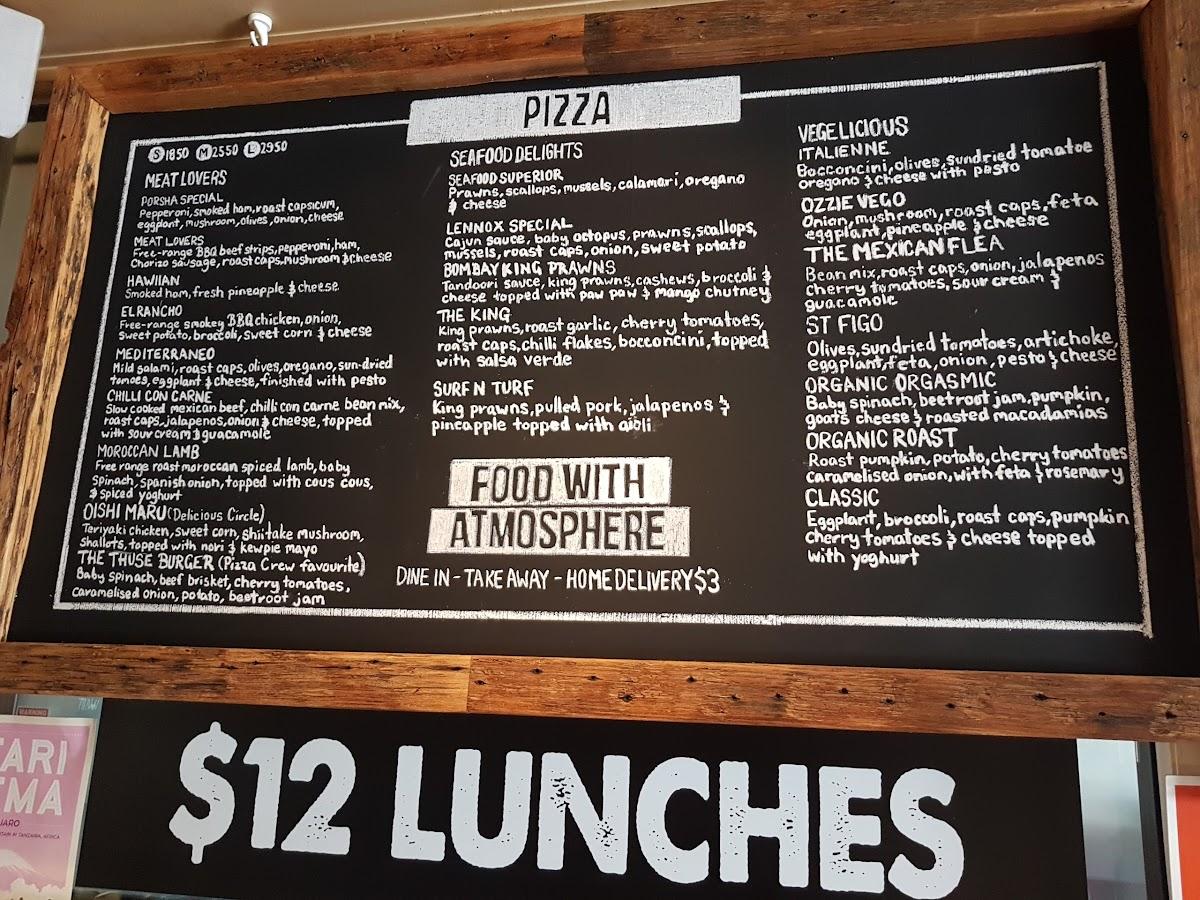 PIZZA
S 1850 M 2550 L 2950
MEAT LOVERS
PORSHA SPECIAL
Pepperoni, smoked ham, roast capsicum,
eggplant, mushroom, olives, onion, cheese
MEAT LOVERS
Free-range BBQ beef strips, pepperoni, ham,
Chorizo sausage, roast caps, mushroom & cheese
HAWIIAN
Smoked ham, fresh pineapple & cheese
EL RANCHO
Free-range smokey BBQ chicken, onion,
Sweet potato, broccoli, sweet corn & cheese
MEDITERRANEO
Mild salami, roast caps, olives, oregano, sun-dried
tomoes, eggplant & cheese, finished with pesto
CHILLI CON CARNE
Slow cooked mexican beef, chilli con carne bean mix,
roast caps, jalapenos, onion & cheese, topped
with sour cream & guacamole
MOROCCAN LAMB
Free range roast moroccan spiced lamb, baby
Spinach, spanish onion, topped with cous cous,
& spiced yoghurt
OISHI MARU (Delicious Circle)
Teriyaki chicken, sweet corn, shiitake mushroom,
Shallots, topped with nori & kewpie mayo
THE THUSE BURGER (Pizza Crew favourite)
Baby spinach, beef brisket, cherry tomatoes,
Caramelised onion, potato, beetroot jam
SEAFOOD DELIGHTS
SEAFOOD SUPERIOR
Prawns, scallops, mussels, calamari, oregano
& cheese
LENNOX SPECIAL
Cajun sauce, baby octopus, prawns, scallops,
mussels, roast caps, onion, sweet potato
BOMBAY KING PRAWNS
Tandoori sauce, king prawns, cashews, broccoli &
cheese topped with paw paw & mango chutney
THE KING
King prawns, roast garlic, cherry tomatoes,
roast caps, chilli flakes, bocconcini, topped
with salsa verde
SURF N TURF
King prawns, pulled pork, jalapenos &
pineapple topped with aioli
FOOD WITH
ATMOSPHERE
DINE IN - TAKE AWAY - HOME DELIVERY $3
VEGELICIOUS
ITALIENNE
Bocconcini, olives, sundried tomatoe
oregano & cheese with pesto
OZZIE VEGO
Onion, mushroom, roast caps, feta
eggplant, pineapple & cheese
THE MEXICAN FLEA
Bean mix, roast caps, onion, jalapenos
Cherry tomatoes, sour cream &
guacamole
ST FIGO
Olives, sundried tomatoes, artichoke,
eggplant, feta, onion, pesto & cheese
ORGANIC ORGASMIC
Baby spinach, beetroot jam, pumpkin,
goats cheese & roasted macadamias
ORGANIC ROAST
Roast pumpkin, potato, cherry tomatoes
Caramelised onion, with feta & rosemary
CLASSIC
Eggplant, broccoli, roast caps, pumpkin
Cherry tomatoes & cheese topped
with yoghurt
$12 LUNCHES
WARNING